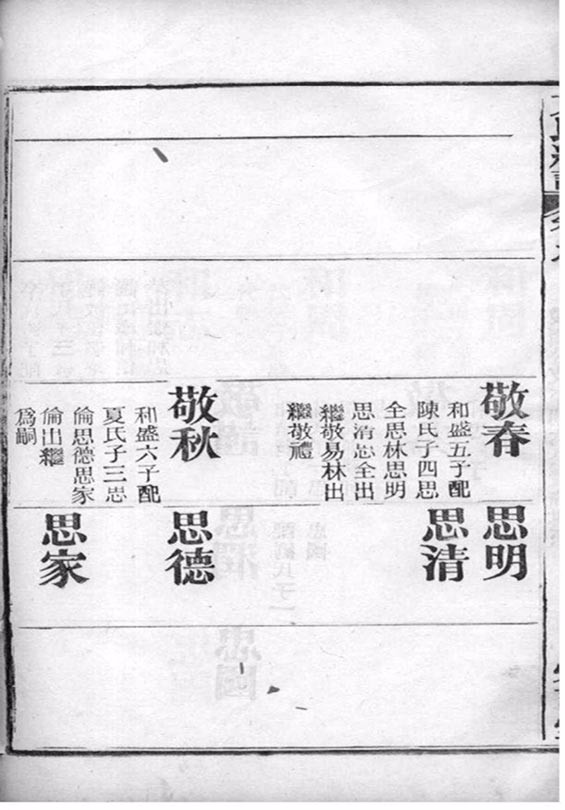 敬春
和盛五子配
陳氏子四思
全思林思明
思清思全出
繼敬易林出
繼敬禮
敬秋
和盛六子配
夏氏子三思
倫思德思家
倫出繼
為嗣
思明
思清
思德
思家